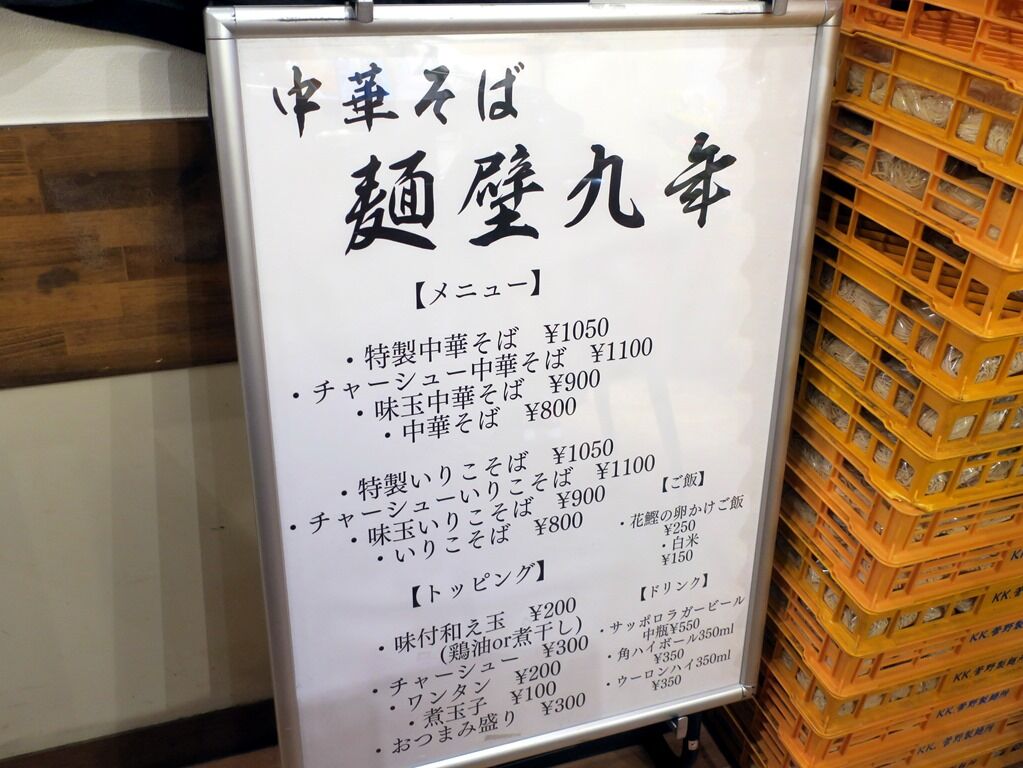 中華そば
麺壁九年
【メニュー】
・特製中華そば ¥1050
・チャーシュー中華そば ¥1100
・味玉中華そば ¥900
・中華そば ¥800
・特製いりこそば ¥1050
・チャーシューいりこそば ¥1100
・味玉いりこそば ¥900
・いりこそば ¥800
【トッピング】
・味付和え玉 ¥200
(鶏油or煮干し)
・チャーシュー ¥300
・ワンタン ¥200
・煮玉子 ¥100
・おつまみ盛り ¥300
【ご飯】
・花鰹の卵かけご飯
¥250
・白米
¥150
【ドリンク】
・サッポロラガービール
中瓶¥550
・角ハイボール350ml
¥350
・ウーロンハイ350ml
¥350
KK.菅野製麺所
KK.菅野製麺所
KK.菅野製麺所
KK.菅野製麺所